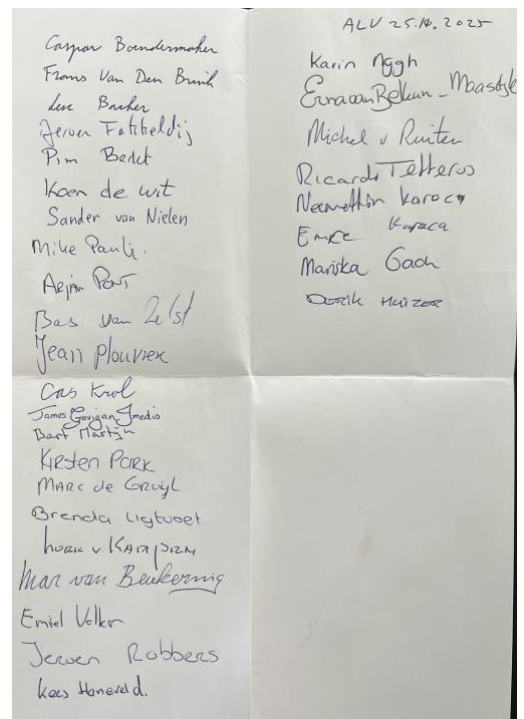 Caspar Boendermaker
Frans Van Den Brink
Luc Bacher
Jeroen
Pim
Koen de wit
Sander van Nielen
Mike Pauli.
Arjan Pont
Bas van Zelst
Jean Plouvier
Cas Krol
James Gavigan Jmedio
Bart Martijn
Kirsten Park
Marc de Gruijl
Brenda Ligtvoet
v
Mar van Beukering
Emiel Volker
Jeroen Robbers
Kees Haneveld.
ALV 2025
Karin Nggh
Erna van Bekum - Maasdijk
Michel v Ruiten
Ricardo Tetteroo
Karaca
Emre Karaca
Mariska
Huizer